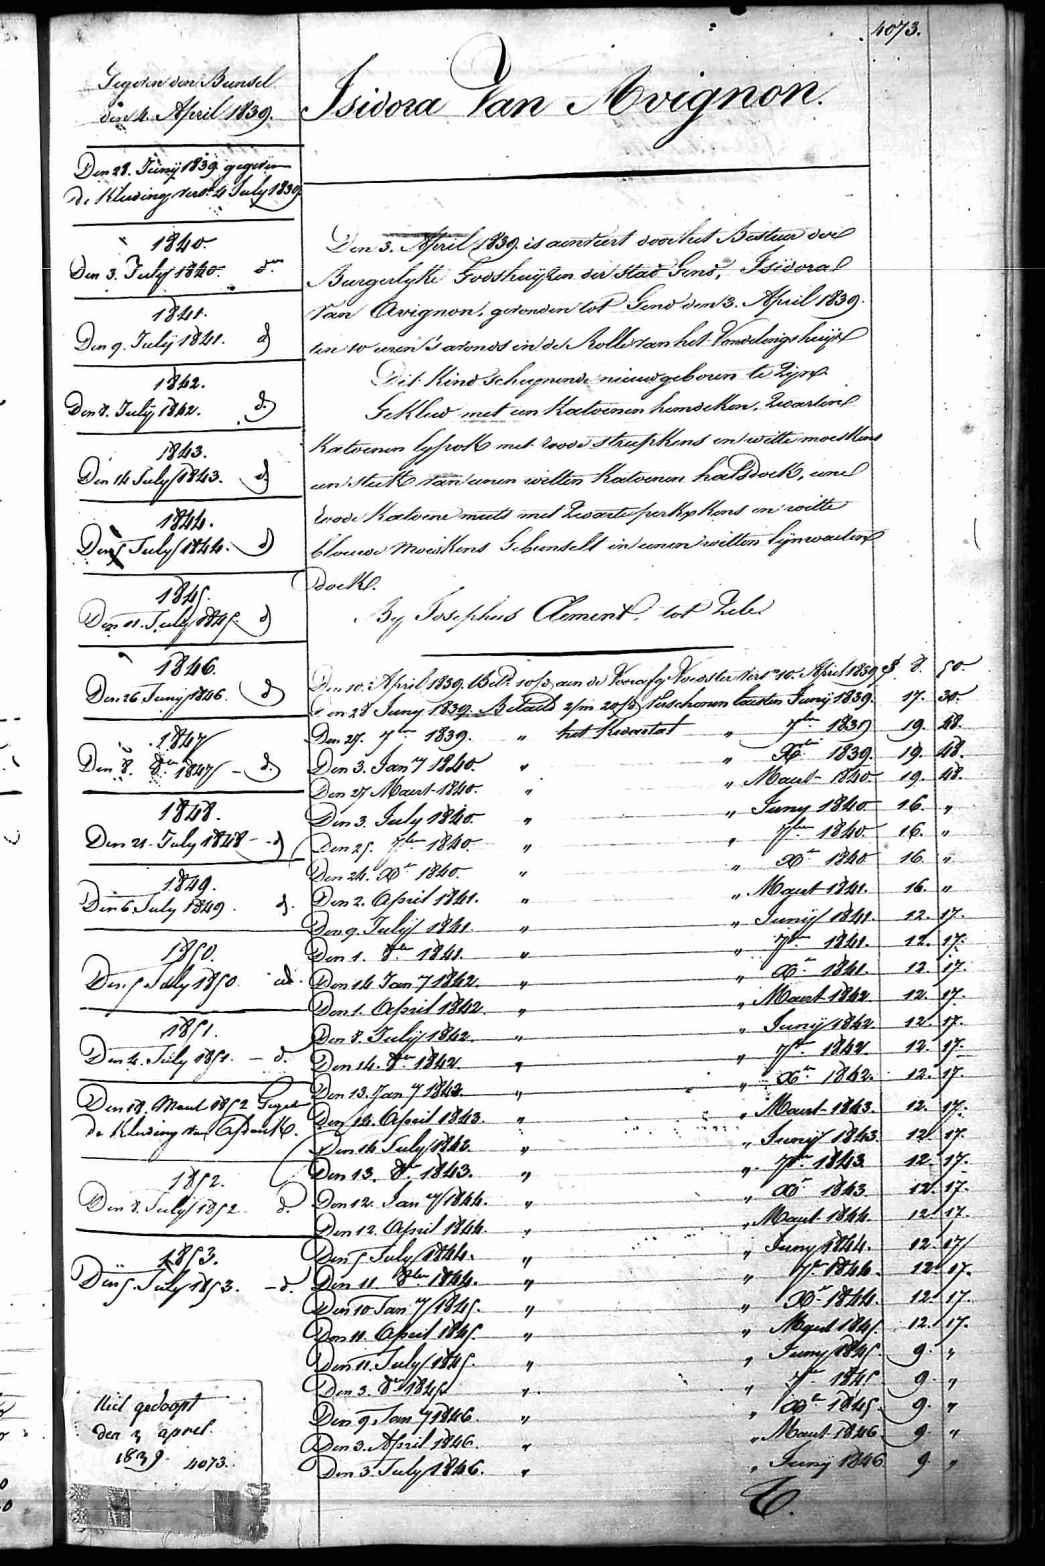 4073.
Isidora Van Avignon.
Gegeven den Bunsel
den 4. April 1839.
Den 28. Junij 1839 gegeven
de Kleeding 4 July 1839
1840
Den 3. July 1840. dn
1841.
Den 9. Julij 1841. d
1842.
Den 8. Julij 1842. d.
1843.
Den 14 July 1843. d
1844.
Den 5 July 1844. d
1845.
Den 11. July 1845. d
1846.
Den 26 Junij 1846. d
1847
Den 8. 8er 1847 - d.
1848.
Den 21. July 1848 - d
1849.
Den 6. July 1849. d.
1850.
Den 5 July 1850. id.
1851.
Den 4. July 1851. - d.
Den 18. Maert 1852 Gegev
de Kleeding van
1852.
Den 8. July 1852 d.
1853.
Den 5. July 1853. - d.
Niet gedoopt
den 3 april
1839. 4073.
Den 3. April 1839. is aenveert door het Bestuur der
Burgerlyke Godshuijzen der Stad Gend, Isidora
Van Avignon, gevonden tot Gend den 3. April 1839.
ten 10 uren 's avonds in de Rolle van het Vondelingshuijs
Dit Kind scheynende nieuwgeboren te Zyn.
Gekleed met een Katoenen hemdeken, Zwarten
Katoenen lyfrok met roode streepkens en witte moeskens
een stuk van eenen witten Katoenen halsdoek, eene
roode Katoene muts met Zwarte perkxkens en witte
blouwe moeskens Gebunselt in eenen witten lynwaeten
doek.
By Josephus Clement, tot Zele
Den 10. April 1839. Bet. 10/3 aen de Voorafg. Voedster 10. April 1839 f. d. 50
Den 28 Juny 1839. Betaeld 2/m 20/d Verschenen laesten Junij 1839. 17. 30.
Den 27. 7er 1839. " het Kwartael " 7ber 1839 19. 48.
Den 3. Jany 1840. " " Xer 1839. 19. 48.
Den 27 Maert 1840. " " Maert 1840 19. 48.
Den 3. July 1840. " " Juny 1840 16. "
Den 25. 7ber 1840. " " 7ber 1840 16. "
Den 24. Xer 1840. " " Xer 1840 16. "
Den 2. April 1841. " " Maert 1841. 16. "
Den 9. July 1841. " " Junij 1841. 12. 17.
Den 1. 8er 1841. " " 7er 1841. 12. 17.
Den 14 Jany 1842. " " Xer 1841. 12. 17.
Den 1. April 1842. " " Maert 1842. 12. 17.
Den 8. Julij 1842. " " Junij 1842. 12. 17.
Den 14. 8er 1842. " " 7er 1842. 12. 17.
Den 13. Jany 1843. " " Xer 1842. 12. 17.
Den 14. April 1843. " " Maert 1843. 12. 17.
Den 14 July 1843. " " Junij 1843. 12. 17.
Den 13. 8er 1843. " " 7er 1843. 12. 17.
Den 12. Jany 1844. " " Xer 1843. 12. 17.
Den 12. April 1844. " " Maert 1844. 12. 17.
Den 5 July 1844. " " Juny 1844. 12. 17
Den 11. 8ber 1844. " " 7er 1844. 12. 17.
Den 10 Jany 1845. " " Xer 1844. 12. 17.
Den 11. April 1845. " " Maert 1845. 12. 17.
Den 11. July 1845. " " Juny 1845. 9. "
Den 3. 8er 1845 " " 7er 1845. 9. "
Den 9 Jany 1846. " " Xer 1845. 9. "
Den 3. April 1846. " " Maert 1846. 9. "
Den 3 July 1846. " " Junij 1846 9 "